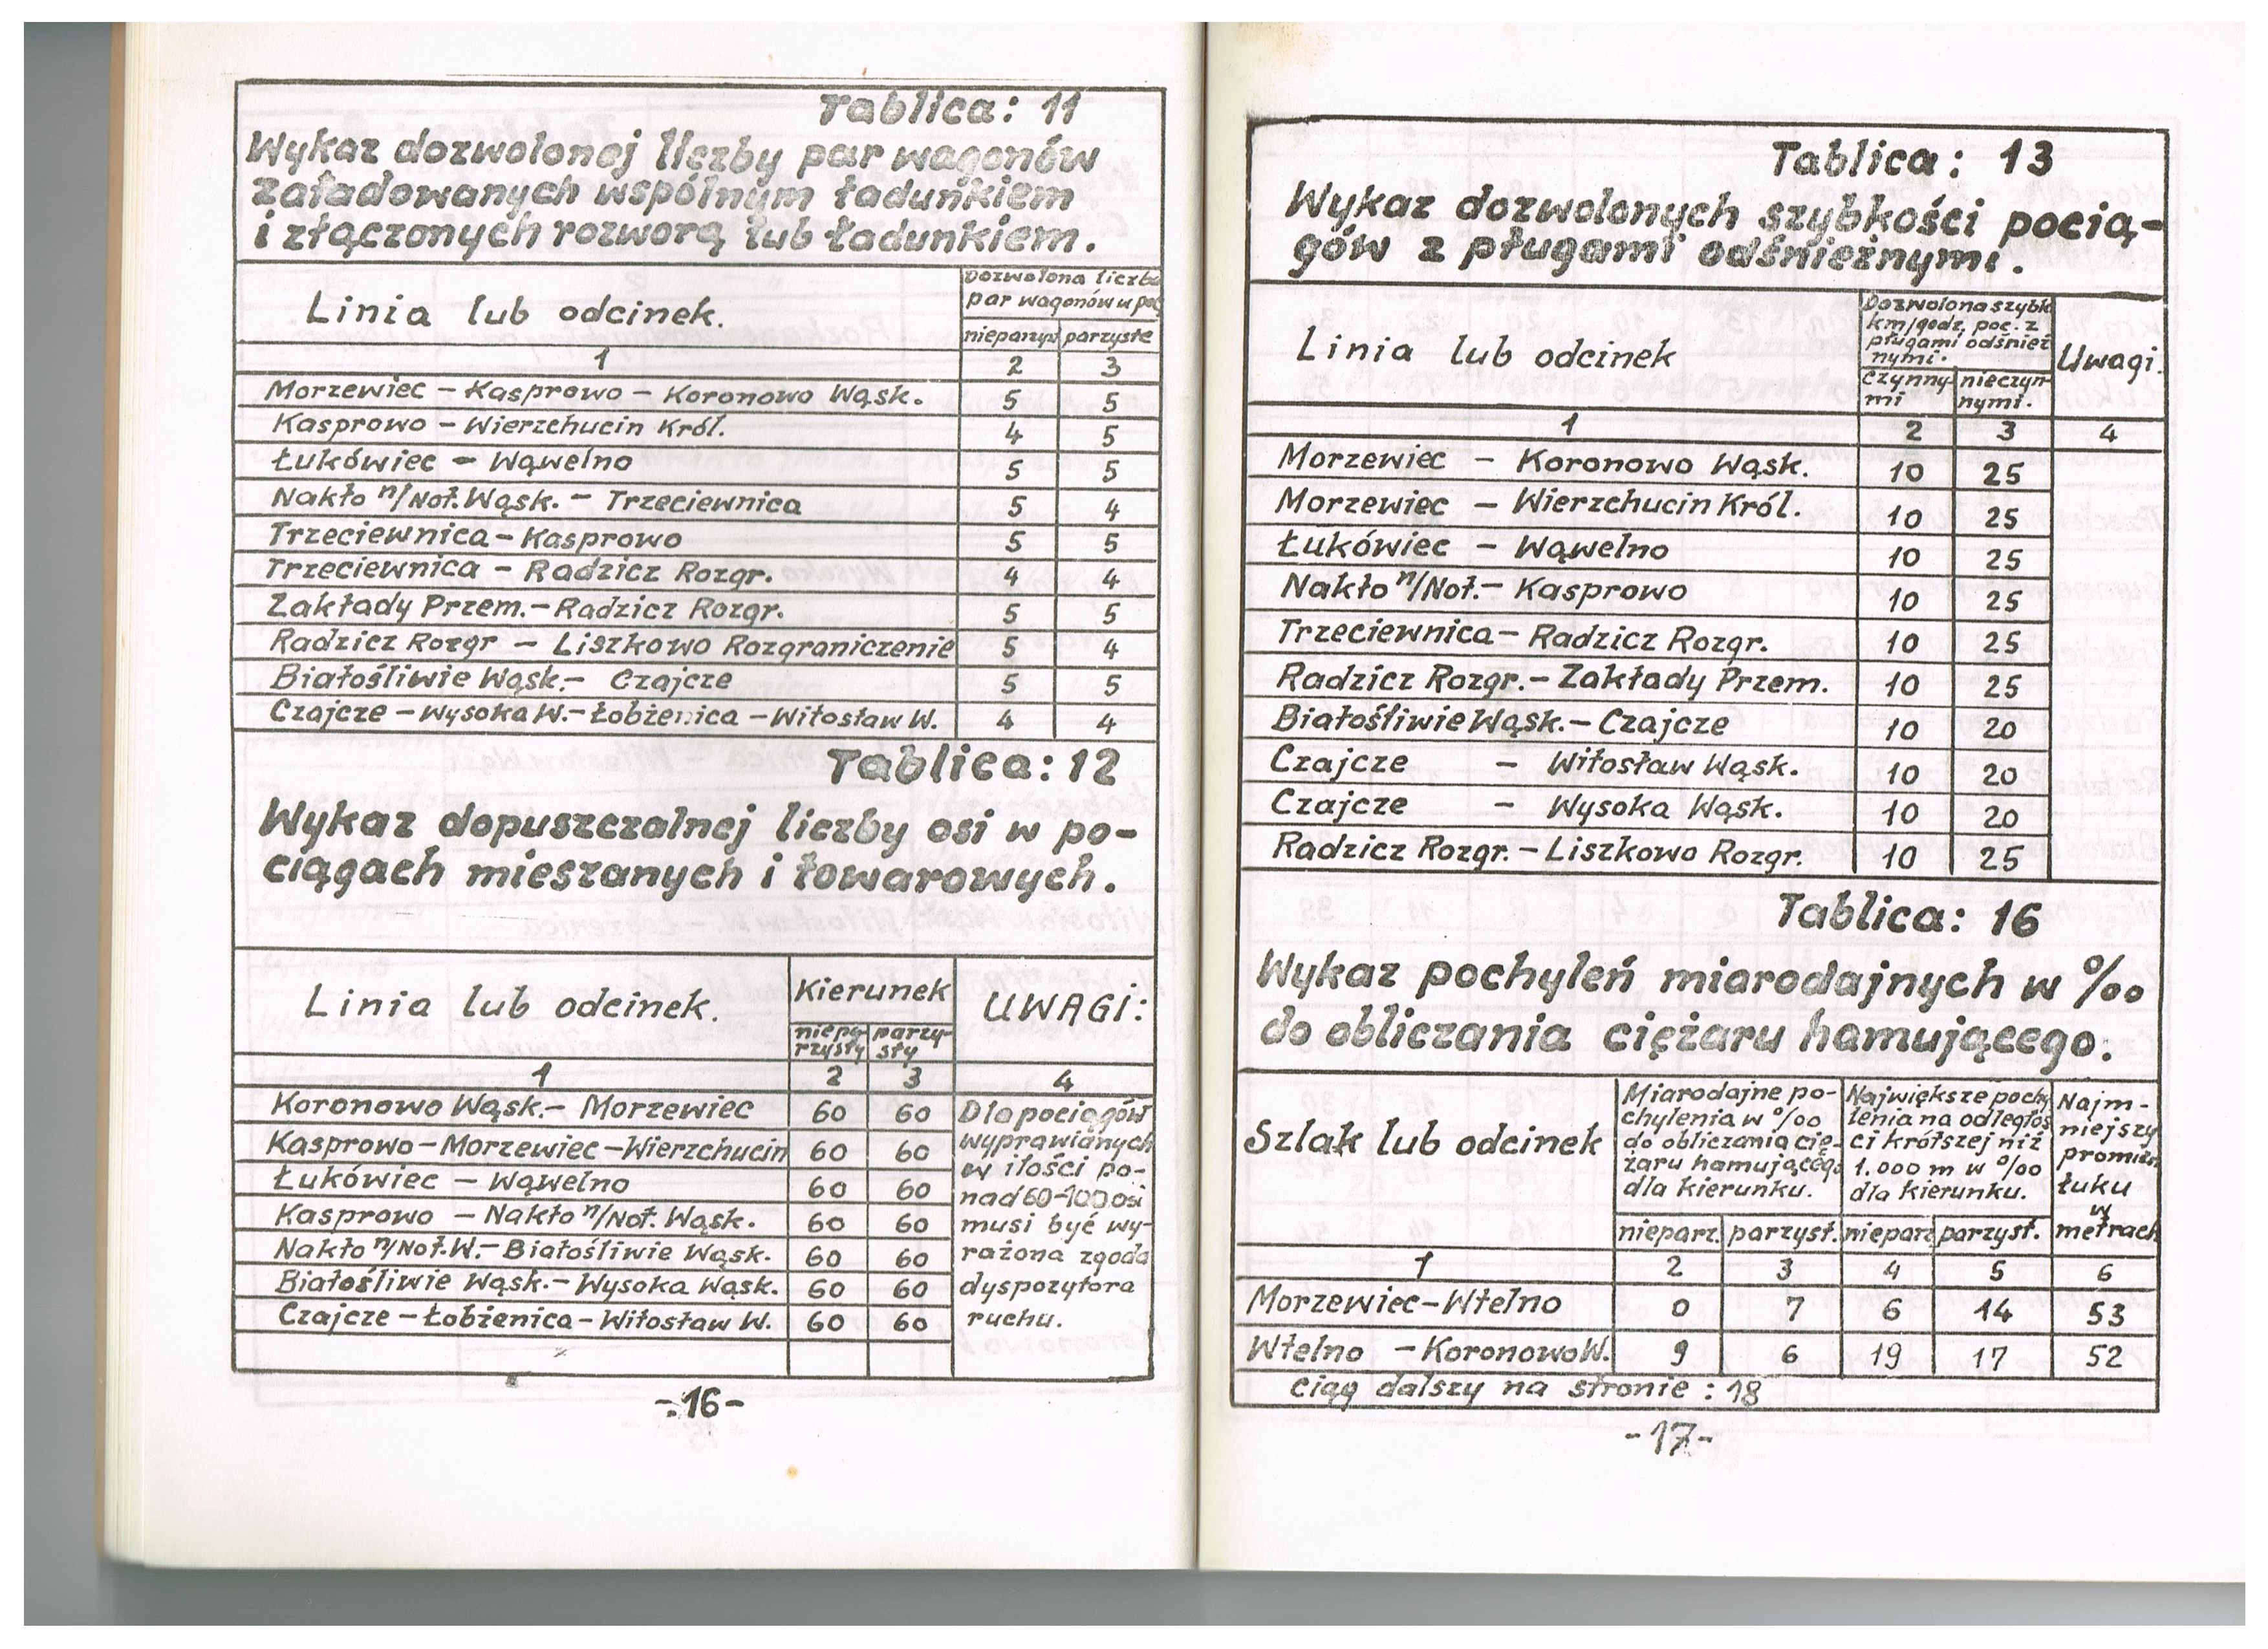 Tablica: 11
Wykaz dozwolonej liczby par wagonów
załadowanych wspólnym ładunkiem
i złączonych rozworą lub ładunkiem.
Linia lub odcinek.
Dozwolona liczba
par wagonów w poc
nieparzys parzyste
1 2 3
Morzewiec - Kasprowo - Koronowo Wąsk. 5 5
Kasprowo - Wierzchucin Król. 4 5
Łukówiec - Wąwelno 5 5
Nakło n/Not. Wąsk. - Trzeciewnica 5 4
Trzeciewnica - Kasprowo 5 5
Trzeciewnica - Radzicz Rozgr. 4 4
Zakłady Przem. - Radzicz Rozgr. 5 5
Radzicz Rozgr - Liszkowo Rozgraniczenie 5 4
Białośliwie Wąsk. - Czajcze 5 5
Czajcze - Wysoka W. - Łobżenica - Witosław W. 4 4
Tablica: 12
Wykaz dopuszczalnej liczby osi w po-
ciągach mieszanych i towarowych.
Linia lub odcinek.
Kierunek
niepa parzy-
rzysty sty
UWAGI:
1 2 3 4
Koronowo Wąsk. - Morzewiec 60 60
Kasprowo - Morzewiec - Wierzchucin 60 60
Łukówiec - Wąwelno 60 60
Kasprowo - Nakło n/Not. Wąsk. 60 60
Nakło n/Not. W. - Białośliwie Wąsk. 60 60
Białośliwie Wąsk. - Wysoka Wąsk. 60 60
Czajcze - Łobżenica - Witosław W. 60 60
Dla pociągów
wyprawianych
w ilości po-
nad 60-100 osi
musi być wy-
rażona zgoda
dyspozytora
ruchu.
-16-
Tablica: 13
Wykaz dozwolonych szybkości pocią-
gów z pługami odśnieżnymi.
Linia lub odcinek
Dozwolona szybk
km/godz. poc. z
pługami odśnież
nymi.
czynny- nieczyn
mi nymi.
Uwagi.
1 2 3 4
Morzewiec - Koronowo Wąsk. 10 25
Morzewiec - Wierzchucin Król. 10 25
Łukówiec - Wąwelno 10 25
Nakło n/Not. - Kasprowo 10 25
Trzeciewnica - Radzicz Rozgr. 10 25
Radzicz Rozgr. - Zakłady Przem. 10 25
Białośliwie Wąsk. - Czajcze 10 20
Czajcze - Witosław Wąsk. 10 20
Czajcze - Wysoka Wąsk. 10 20
Radzicz Rozgr. - Liszkowo Rozgr. 10 25
Tablica: 16
Wykaz pochyleń miarodajnych w ‰
do obliczania ciężaru hamującego.
Szlak lub odcinek
Miarodajne po-
chylenia w ‰
do obliczania cię-
żaru hamującego
dla kierunku.
Największe pochy
lenia na odległoś
ci krótszej niż
1.000 m w ‰
dla kierunku.
Najm-
niejszy
promień
łuku
w
metrach
nieparz. parzyst. nieparz parzyst.
1 2 3 4 5 6
Morzewiec - Wtelno 0 7 6 14 53
Wtelno - Koronowo W. 9 6 19 17 52
ciąg dalszy na stronie : 18
-17-